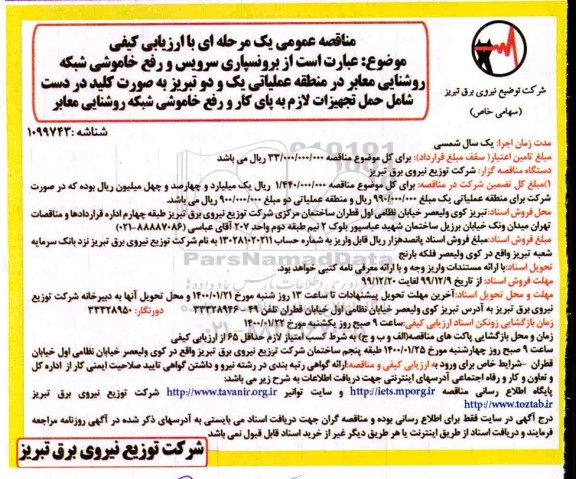 شرکت توزیع نیروی برق تبریز
(سهامی خاص)
مناقصه عمومی یک مرحله ای با ارزیابی کیفی
موضوع: عبارت است از برونسپاری سرویس و رفع خاموشی شبکه
روشنایی معابر در منطقه عملیاتی یک و دو تبریز به صورت کلید در دست
شامل حمل تجهیزات لازم به پای کار و رفع خاموشی شبکه روشنایی معابر
شناسه: ۱۰۹۹۷۴۳
مدت زمان اجرا: یک سال شمسی
مبلغ تامین اعتبار( سقف مبلغ قرارداد): برای کل موضوع مناقصه ۳۳/۰۰۰/۰۰۰/۰۰۰ ریال می باشد
دستگاه مناقصه گزار: شرکت توزیع نیروی برق تبریز
۱)مبلغ کل تضمین شرکت در مناقصه: برای کل موضوع مناقصه ۱/۴۴۰/۰۰۰/۰۰۰ ریال یک میلیارد و چهارصد و چهل میلیون ریال بوده که در صورت
شرکت برای منطقه عملیاتی یک مبلغ ۹۹۰/۰۰۰/۰۰۰ ریال و منطقه عملیاتی دو مبلغ ۹۰۰/۰۰۰/۰۰۰ ریال می باشد.
محل فروش اسناد:تبریز کوی ولیعصر خیابان نظامی اول قطران ساختمان مرکزی شرکت توزیع نیروی برق تبریز طبقه چهارم اداره قراردادها و مناقصات
تهران میدان ونک خیابان برزیل ساختمان شهید عباسپور بلوک ۲ نیم طبقه دوم واحد ۲۰۷ آقای عباسی (۸۸۸۷۰۸۶-۰۲۱)
مبلغ فروش اسناد:مبلغ فروش اسناد پانصدهزار ریال قابل واریز به شماره حساب ۱۳۰۲۸۱۰۲۰۲۱۱ به نام شرکت توزیع نیروی برق تبریز نزد بانک سرمایه
شعبه تبریز واقع در کوی ولیعصر فلکه بارنج
تحویل اسناد:با ارائه مستندات واریز وجه و با ارائه معرفی نامه کتبی خواهد بود.
مهلت فروش اسناد: از تاریخ ۹۹/۱۲/۹ لغایت ۹۹/۱۲/۲۰
مهلت و محل تحویل اسناد:آخرین مهلت تحویل پیشنهادات تا ساعت ۱۳ روز شنبه مورخ ۱۴۰۰/۰۱/۲۱ و محل تحویل آنها به دبیرخانه شرکت توزیع
نیروی برق تبریز به آدرس تبریز کوی ولیعصر خیابان نظامی اول خیابان قطران تلفن ۴۹ – ۳۳۳۲۸۹۴۶ دورنگار: ۳۳۳۲۸۹۵۰
زمان بازگشایی زونکن اسناد ارزیابی کیفی:ساعت ۹ صبح روز یکشنبه مورخ ۱۴۰۰/۰۱/۲۲
زمان و محل بازگشایی پاکت های مناقصه(الف و ب و ج) به شرط کسب امتیاز لازم حداقل ۶۵ از ارزیابی کیفی
ساعت ۹ صبح روز چهارشنبه مورخ ۱۴۰۰/۰۱/۲۵ طبقه پنجم ساختمان شرکت توزیع نیروی برق تبریز واقع در کوی ولیعصر خیابان نظامی اول خیابان
قطران –شرایط خاص برای ورود به ارزیابی کیفی و مناقصه:ارائه گواهی رتبه بندی در رشته نیرو و داشتن گواهی تایید صلاحیت ایمنی کار از اداره کل
و تعاون و کار و رفاه اجتماعی آدرسهای اینترنتی جهت دریافت اطلاعات به شرح زیر می باشد:
پایگاه اطلاع رسانی مناقصه http://iets.mporg.ir و سایت توانیر http://www.tavanir.org.ir شرکت توزیع نیروی برق تبریز
http://www.toztab.ir
درج آگهی در سایت فقط برای اطلاع رسانی بوده و مناقصه گران جهت دریافت اسناد می بایستی به آدرسهای ذکر شده در آگهی روزنامه مراجعه
فرمایند و دریافت اسناد از طریق اینترنت یا هر طریق دیگر غیر از خرید اسناد قابل قبول نمی باشد
شرکت توزیع نیروی برق تبریز
ParsNamadData